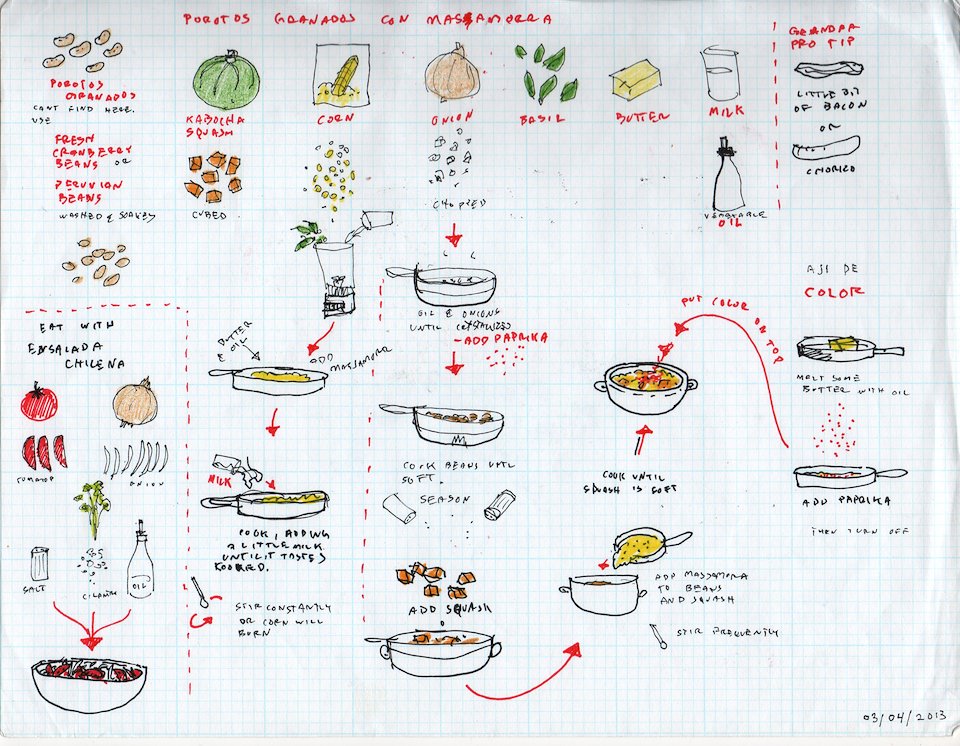 POROTOS GRANADOS CON MASSAMORRA
POROTOS
GRANADOS
CANT FIND HERE.
USE
FRESH
CRANBERRY
BEANS OR
PERUVIAN
BEANS
WASHED & SOAKED
KABOCHA
SQUASH
CUBED
CORN
ONION
CHOPPED
BASIL
BUTTER
MILK
VEGETABLE
OIL
GRANDPA
PRO TIP
LITTLE BIT
OF BACON
OR
CHORIZO
EAT WITH
ENSALADA
CHILENA
TOMATO
ONION
SALT
CILANTRO
OIL
BUTTER
& OIL
ADD
MASSAMORRA
MILK
COOK, ADDING
A LITTLE MILK
UNTIL IT TASTES
COOKED.
STIR CONSTANTLY
OR CORN WILL
BURN
OIL & ONIONS
UNTIL CRYSTALIZED
- ADD PAPRIKA
COOK BEANS UNTIL
SOFT.
SEASON
ADD SQUASH
ADD MASSAMORRA
TO BEANS
AND SQUASH
STIR FREQUENTLY
COOK UNTIL
SQUASH IS SOFT
PUT COLOR ON TOP
AJI DE
COLOR
MELT SOME
BUTTER WITH OIL
ADD PAPRIKA
THEN TURN OFF
03/04/2013